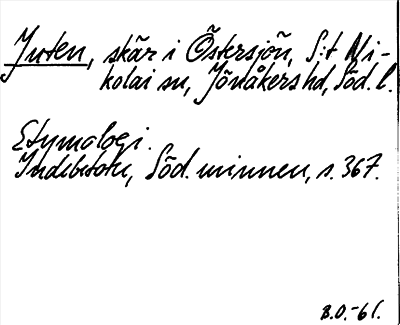 Juten, skär i Östersjön, S:t Ni-
kolai sn, Jönåkers hd, Söd. l.
Etymologi.
Indebetou, Söd. minnen, s. 367.
B.O.-61.